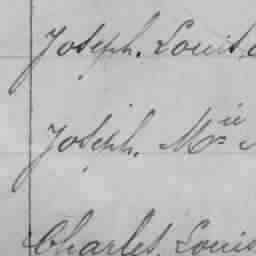 Joseph. Louis
Joseph. Mie
Charles. Louis